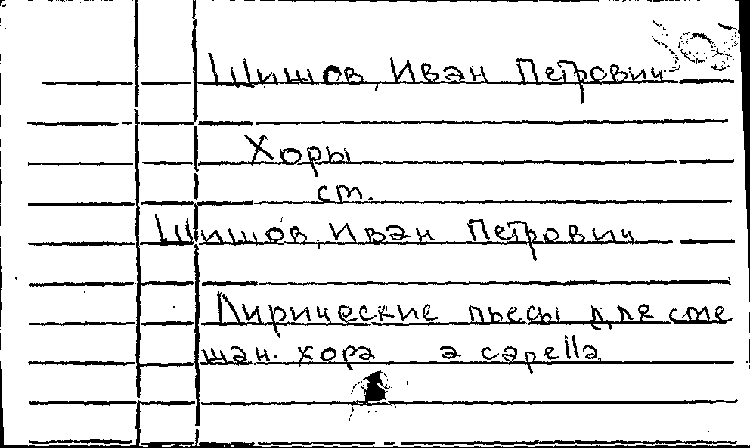 Шишов, Иван Петрович
Хоры
ст.
Шишов, Иван Петрович
Лирические пьесы для сме
шан. хора a capella